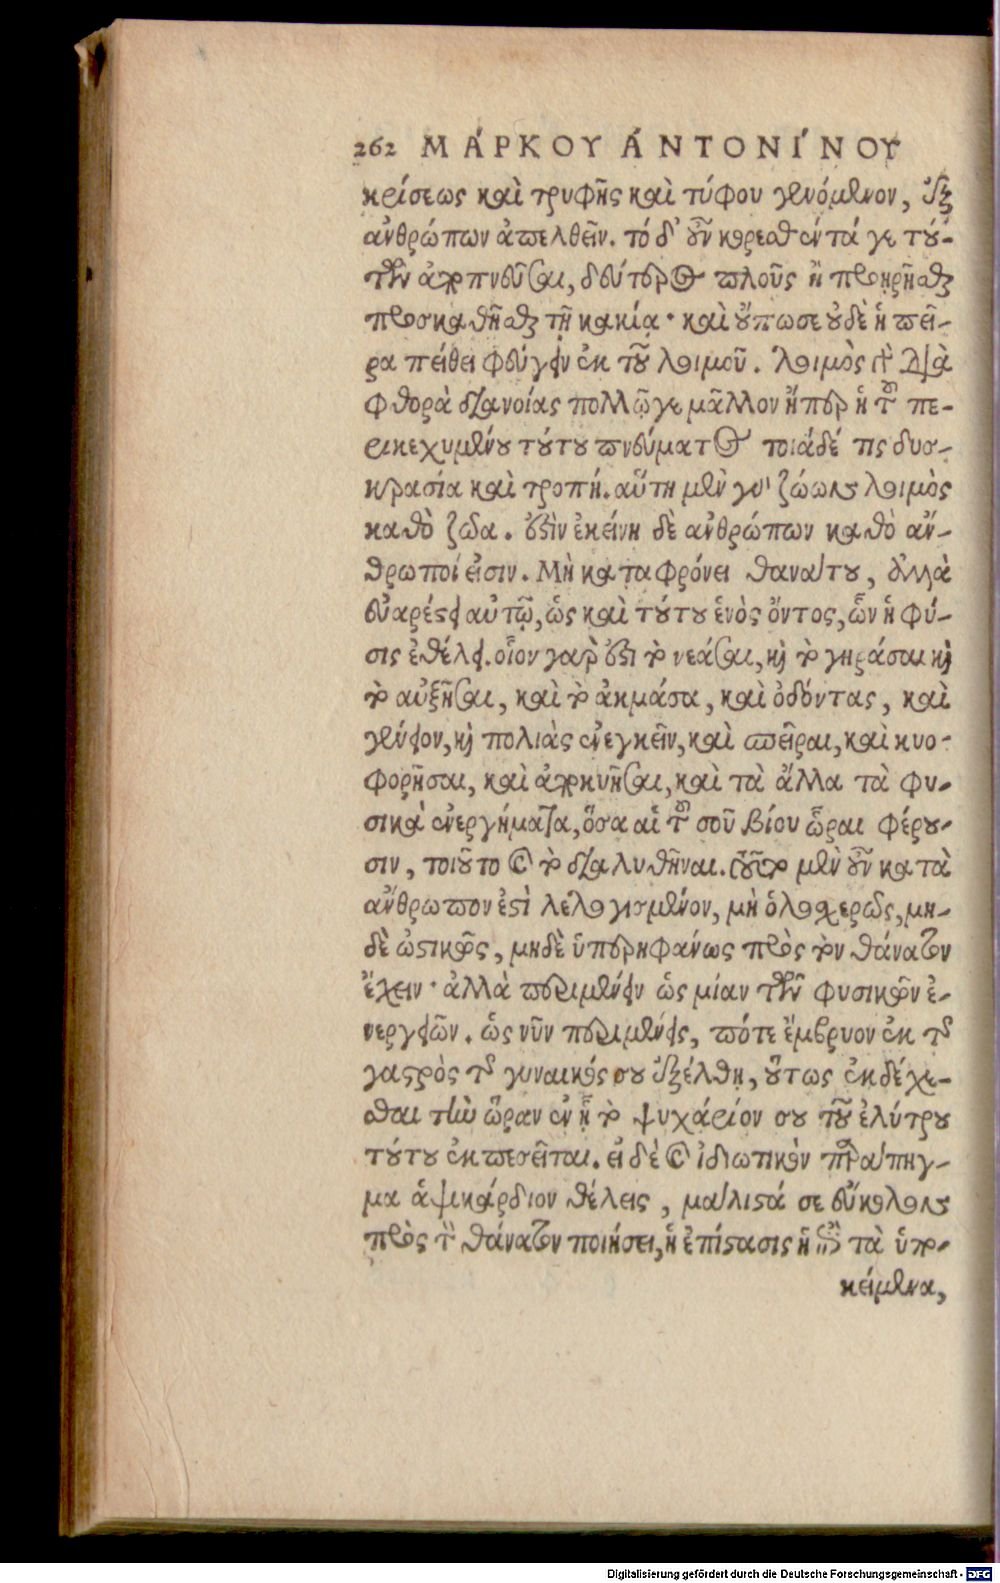 262 ΜΆΡΚΟΥ ἈΝΤΟΝΊΝΟΥ
κρίσεως καὶ τρυφῆς καὶ τύφου γενόμενον, ἐξ
ἀνθρώπων ἀπελθεῖν. τό δ' οὖν κορεσθέντά γε τού-
των ἀποπνεῦσαι, δεύτερος πλοῦς ἢ προῃρῆσθαι
προσκαθῆσθαι τῇ κακίᾳ· καὶ οὔπω σε οὐδὲ ἡ πεῖ-
ρα πείθει φεύγειν ἐκ τοῦ λοιμοῦ. λοιμὸς γὰρ διαφ
φθορὰ διανοίας πολλῷ γε μᾶλλον ἤπερ ἡ τοῦ πε-
ρικεχυμένου τούτου πνεύματος τοιάδέ τις δυσ-
κρασία καὶ τροπή. αὕτη μὲν γὰρ ζώων λοιμὸς
καθὸ ζῶα. ἐστὶν ἐκείνη δὲ ἀνθρώπων καθὸ ἄν-
θρωποί εἰσιν. Μὴ καταφρόνει θανάτου, ἀλλὰ
εὐαρέστει αὐτῷ, ὡς καὶ τούτου ἑνὸς ὄντος, ὧν ἡ φύ-
σις ἐθέλει. οἷον γάρ ἐστι τὸ νεάσαι, καὶ τὸ γηράσαι καὶ
τὸ αὐξῆσαι, καὶ τὸ ἀκμάσα, καὶ ὀδόντας, καὶ
γένειον, καὶ πολιὰς ἐνεγκεῖν, καὶ σπεῖραι, καὶ κυο-
φορῆσαι, καὶ ἀποκυῆσαι, καὶ τὰ ἄλλα τὰ φυ-
σικὰ ἐνεργήματα, ὅσα αἱ τοῦ σοῦ βίου ὧραι φέρου-
σιν, τοιοῦτο καὶ τὸ διαλυθῆναι. τοῦτο μὲν οὖν κατὰ
ἄνθρωπον ἐστὶ λελογισμένον, μὴ ὁλοσχερῶς, μη-
δὲ ὠστικῶς, μηδὲ ὑπερηφάνως πρὸς τὸν θάνατον
ἔχειν· ἀλλὰ περιμένειν ὡς μίαν τῶν φυσικῶν ἐ-
νεργειῶν. ὡς νῦν περιμένεις, πότε ἔμβρυον ἐκ τῆς
γαστρὸς τῆς γυναικός σου ἐξέλθῃ, οὕτως ἐκδέχε-
σθαι τὴν ὥραν ἐν ᾗ τὸ ψυχάριόν σου τοῦ ἐλύτρου
τούτου ἐκπεσεῖται. εἰ δὲ καὶ ἰδιωτικὸν παράπηγ-
μα ἁψικάρδιον θέλεις, μάλιστά σε εὔκολον
πρὸς τὸν θάνατον ποιήσει, ἡ ἐπίστασις ἡ ἐπὶ τὰ ὑπο-
κείμενα,
Digitalisierung gefördert durch die Deutsche Forschungsgemeinschaft - DFG